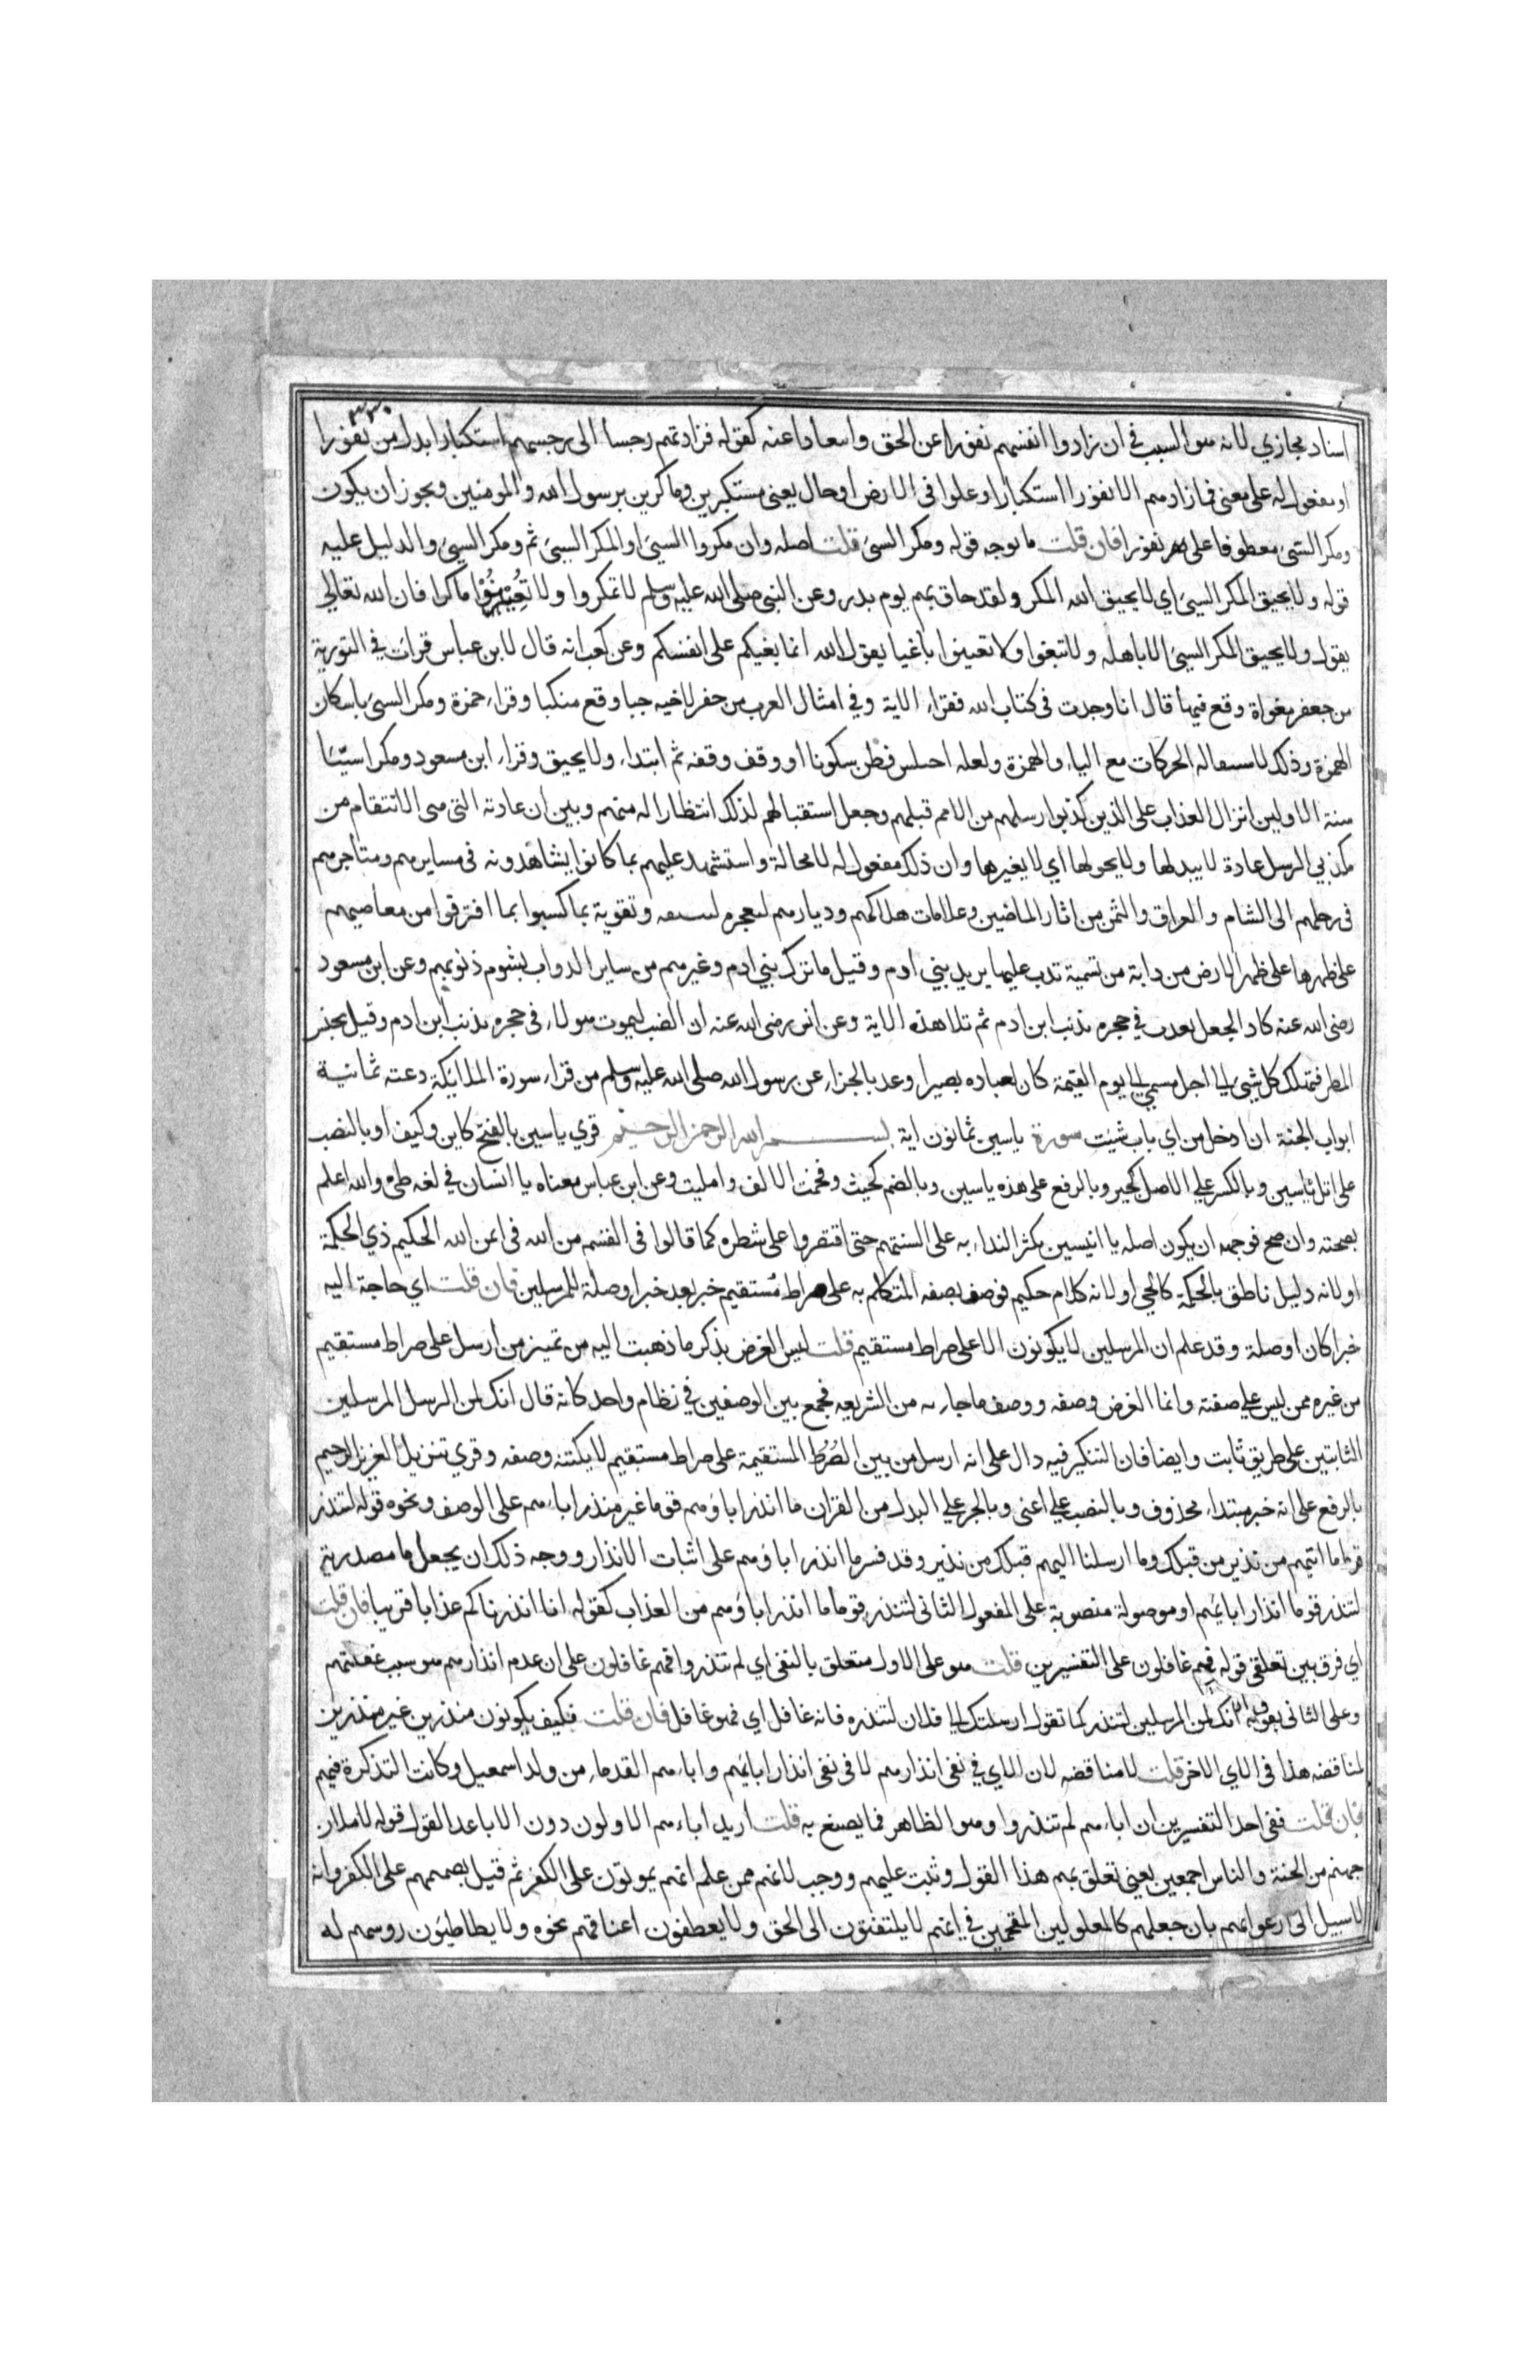 ٣٣٠
اسناد مجازي لانه هو السبب في ان زادوا انفسهم نفورا عن الحق وابتعادا عنه كقوله فزادتهم رجسا الى رجسهم استكبارا بدل من نفورا
او مفعول له على معنى فما زادهم الا نفورا استكبارا وعلوا فى الارض او حال يعنى مستكبرين وماكرين برسول الله والمومنين ويجوز ان يكون
ومكر السيئ معطوفا على نفورا فان قلت ما وجه قوله ومكر السيئ قلت اصله وان مكروا السيئ او المكر السيئ ثم ومكر السيئ والدليل عليه
قوله ولا يحيق المكر السيئ اي لا يحيق الله المكر ولقد حاق بهم يوم بدر وعن النبي صلى الله عليه وسلم لا تمكروا ولا تُعِينُوْا ماكرا فان الله تعالى
يقول ولا يحيق المكر السيئ الا باهله ولا تبغوا ولا تعينوا باغيا يقول الله انما بغيكم على انفسكم وعن كعب انه قال لابن عباس قرات في التورية
من حفر مغواة وقع فيها قال انا وجدت فى كتاب الله فقراء الاية وفي امثال العرب من حفر لاخيه جبا وقع منكبا وقراء حمزة ومكر السيئ باسكان
الهمزة وذلك لاستثقاله الحركات مع الياء والهمزة ولعله اختلس فظن سكونا او وقف وقفه ثم ابتداء ولا يحيق وقراء ابن مسعود ومكرا سيّئا
سنة الاولين انزال العذاب على الذين كذبوا برسلهم من الامم قبلهم وجعل استقبالهم لذلك انتظارا له منهم وبين ان عادته التى هى الانتقام من
مكذبي الرسل عادة لا يبدلها ولا يحولها اي لا يغيرها وان ذلك مفعول له لا محالة واستشهد عليهم بما كانوا يشاهدونه فى مسايرهم ومتاجرهم
فى رحلهم الى الشام والعراق واليمن من اثار الماضين وعلامات هلاكهم وديارهم ليعجزه ليسبقه وتفوته بما كسبوا بما اقترفوا من معاصيهم
على ظهرها على ظهر الارض من دابة من نسمة تدب عليها يريد بني ادم وقيل ما ترك بني ادم وغيرهم من ساير الدواب بشوم ذنوبهم وعن ابن مسعود
رضى الله عنه كاد الجعل يعذب في جحره بذنب ابن ادم ثم تلا هذه الاية وعن انس رضى الله عنه ان الضب ليموت هزلا في جحره بذنب ابن ادم وقيل يحبس
المطر فيهلك كل شيئ الى اجل مسمى الى يوم القيمة كان بعباده بصيرا وعد بالجزاء عن رسول الله صلى الله عليه وسلم من قراء سورة الملائكة دعته ثمانية
ابواب الجنة ان ادخل من اي باب شيت سورة ياسين ثمانون اية بسم الله الرحمن الرحيم قري ياسين بالفتح كاين وكيف او بالنصب
على اتل ياسين وبالكسر علي الاصل كجير وبالرفع على هذه ياسين وبالضم كحيث وفخمت الالف واميلت وعن ابن عباس معناه يا انسان في لغه طي والله اعلم
بصحته وان صح فوجهه ان يكون اصله يا انيسين بكثر النداء به على السنتهم حتى اقتصروا على شطره كما قالوا فى القسم من الله فى ايمن الله الحكيم ذي الحكمة
او لانه دليل ناطق بالحكمة كالحي او لانه كلام حكيم فوصف بصفه المتكلم به على صراط مستقيم خبر بعد خبر او صلة للمرسلين فان قلت اي حاجة اليه
خبرا كان او صلة وقد علم ان المرسلين لا يكونون الا على صراط مستقيم قلت ليس الغرض بذكر ما ذهبت اليه من تمييز من ارسل على صراط مستقيم
من غيره ممن ليس علي صفته وانما الغرض وصفه ووصف ما جاء به من الشريعه فجمع بين الوصفين في نظام واحد كانه قال انك لمن الرسل المرسلين
الثابتين على طريق ثابت وايضا فان التنكير فيه دال على انه ارسل من بين الصُرُط المستقيمة على صراط مستقيم لا يكتنه وصفه وقري تنزيل العزيز الرحيم
بالرفع على انه خبر مبتداء محذوف وبالنصب علي اعنى وبالجر علي البدل من القران ما انذر اباؤهم قوما غير منذر اباءهم على الوصف ونحوه قوله لتنذر
قوما ما اتيهم من نذير من قبلك وما ارسلنا اليهم قبلك من نذير وقد فسر ما انذر اباؤهم على اثبات الانذار ووجه ذلك ان يجعل ما مصدرية
لتنذر قوما انذار ابائهم او موصولة منصوبة على المفعول الثانى لتنذر قوما ما انذر اباؤهم من العذاب كقوله انا انذرناكم عذابا قريبا فان قلت
اي فرق بين تعلقي قوله فهم غافلون على التفسيرين قلت هو على الاول متعلق بالنفى اي لم ينذروا فهم غافلون على ان عدم انذارهم هو سبب غفلتهم
وعلى الثانى بقوله انك لمن المرسلين لتنذر كما تقول ارسلتك الى فلان لتنذره فانه غافل اي فهو غافل فان قلت فكيف يكونون منذرين غير منذرين
لمناقضه هذا فى الاي الاخر قلت لا مناقضه لان الاي في نفى انذارهم لا فى نفى انذار ابائهم واباءهم القدماء من ولد اسمعيل وكانت التذكرة فيهم
فان قلت ففى احد التفسيرين ان اباءهم لم ينذروا وهو الظاهر فما يصنع به قلت اريد اباءهم الاولون دون الاباعد القول قوله لاملان
جهنم من الجنة والناس اجمعين يعنى تعلق بهم هذا القول وثبت عليهم ووجب لانهم ممن علم انهم يموتون على الكفر ثم قيل بصممهم على الكفر وانه
لا سبيل الى ارعوائهم بان جعلهم كالمغلولين المقمحين في انهم لا يلتفتون الى الحق ولا يعطفون اعناقهم نحوه ولا يطاطيئون روسهم له